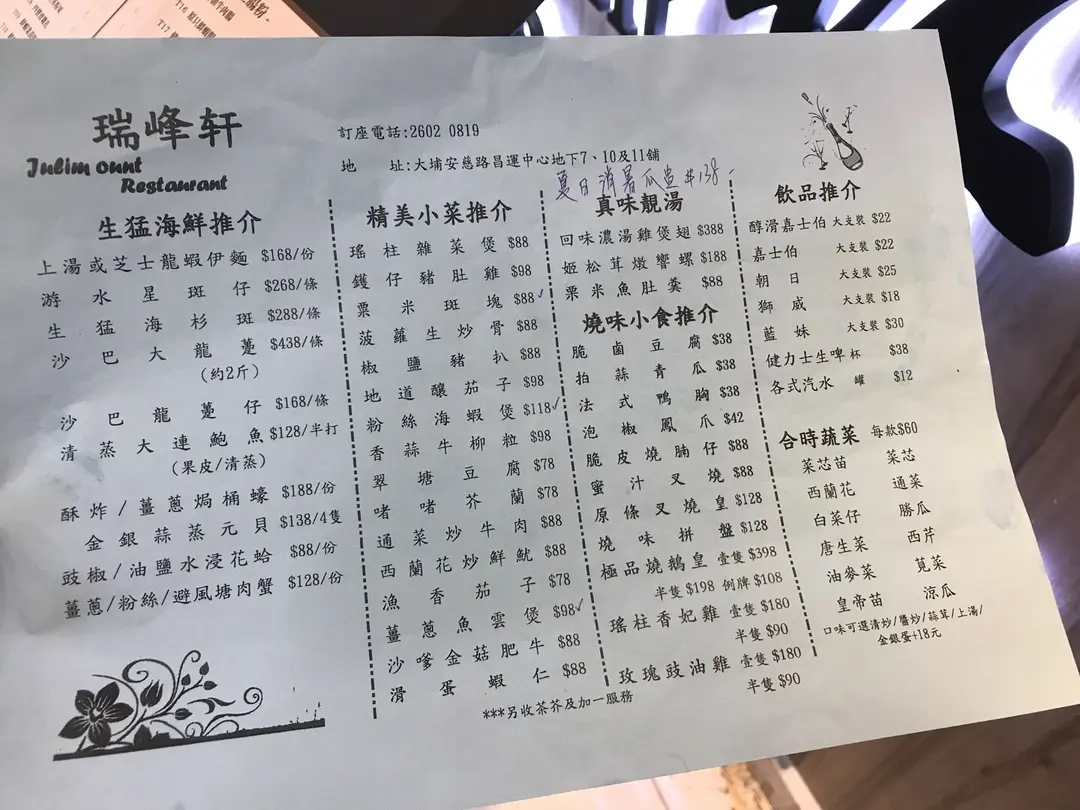 瑞峰轩
Julim ount
Restaurant
訂座電話:2602 0819
地 址:大埔安慈路昌運中心地下7、10及11舖
生猛海鮮推介
上湯或芝士龍蝦伊麵 $168/份
游水星斑仔 $268/條
生猛海杉斑 $288/條
沙巴大龍躉 $438/條
(約2斤)
沙巴龍躉仔 $168/條
清蒸大連鮑魚 $128/半打
(果皮/清蒸)
酥炸/薑蔥焗桶蠔 $188/份
金銀蒜蒸元貝 $138/4隻
豉椒/油鹽水浸花蛤 $88/份
薑蔥/粉絲/避風塘肉蟹 $128/份
精美小菜推介
瑤柱雜菜煲 $88
鑊仔豬肚雞 $98
粟米斑塊 $88✓
菠蘿生炒骨 $88
椒鹽豬扒 $88
地道釀茄子 $98
粉絲海蝦煲 $118✓
香蒜牛柳粒 $98
翠塘豆腐 $78
啫啫芥蘭 $78
通菜炒牛肉 $88
西蘭花炒鮮魷 $88
漁香茄子 $78
薑蔥魚雲煲 $98✓
沙嗲金菇肥牛 $88
滑蛋蝦仁 $88
夏日消暑瓜盅 #138-
真味靚湯
回味濃湯雞煲翅 $388
姬松茸燉響螺 $188
粟米魚肚羹 $88
燒味小食推介
脆鹵豆腐 $38
拍蒜青瓜 $38
法式鴨胸 $38
泡椒鳳爪 $42
脆皮燒腩仔 $88
蜜汁叉燒 $88
原條叉燒皇 $128
燒味拼盤 $128
極品燒鵝皇 壹隻 $398
半隻 $198 例牌 $108
瑤柱香妃雞 壹隻 $180
半隻 $90
玫瑰豉油雞 壹隻 $180
半隻 $90
飲品推介
醇滑嘉士伯 大支裝 $22
嘉士伯 大支裝 $22
朝日 大支裝 $25
獅威 大支裝 $18
藍妹 大支裝 $30
健力士生啤 杯 $38
各式汽水 罐 $12
合時蔬菜 每款$60
菜芯苗 菜芯
西蘭花 通菜
白菜仔 勝瓜
唐生菜 西芹
油麥菜 莧菜
皇帝苗 涼瓜
口味可選清炒/醬炒/蒜茸/上湯/
金銀蛋+18元
***另收茶芥及加一服務